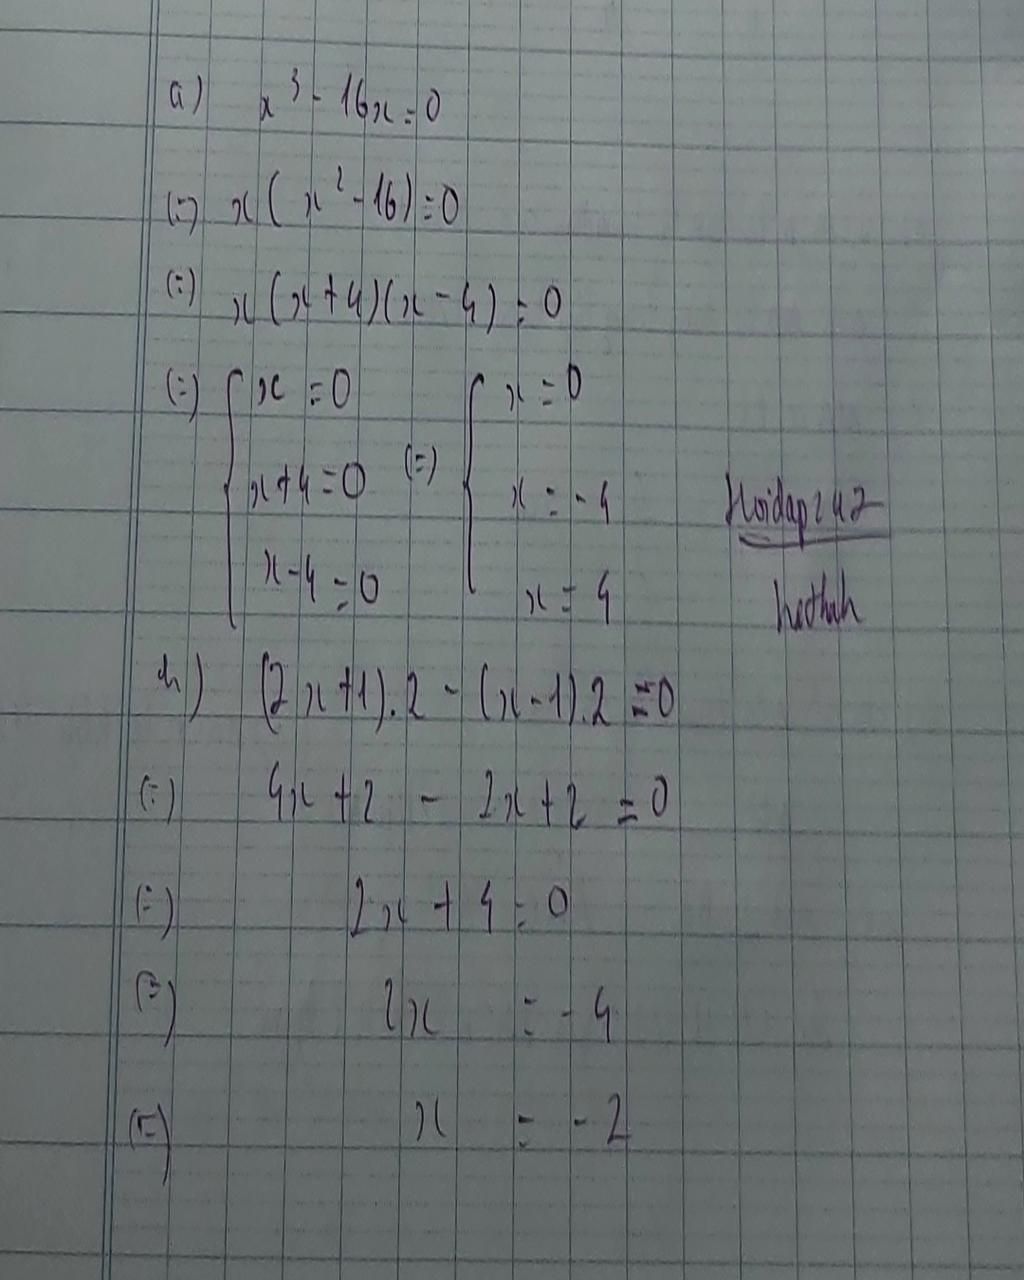 a) x³ - 16x = 0
(=) x(x² - 16) = 0
(=) x(x + 4)(x - 4) = 0
(=) { x = 0 (=) { x = 0
x + 4 = 0 x = -4
x - 4 = 0 x = 4
Hoidap247
h) (2x + 1).2 - (x - 1).2 = 0
(=) 4x + 2 - 2x + 2 = 0
(=) 2x + 4 = 0
(=) 2x = -4
(=) x = -2